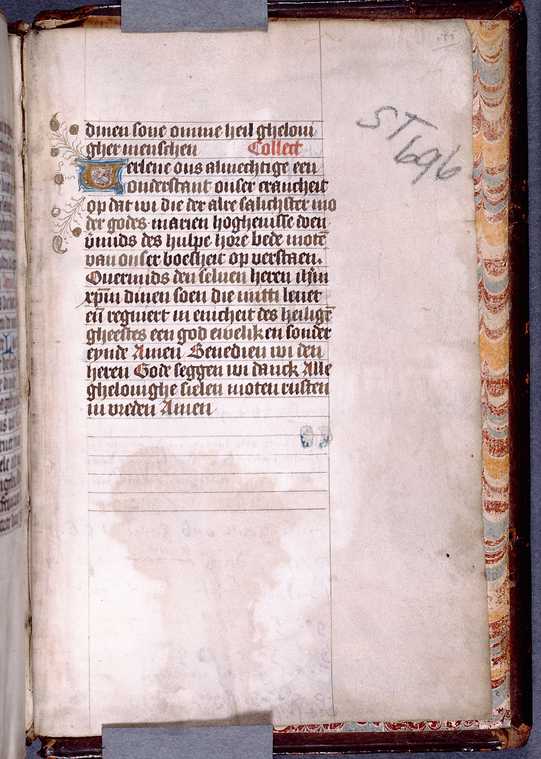 dinen sone omme heil ghelovi
gher menschen Collect
Verlene ons almechtige een
onderstant onser crancheit
op dat wi die der alre salichster mo
der godes marien hoghenisse doen
ƀmids des hulpe hore bede motē
van onser boesheit op verstaen.
Overmids den selven heren ihm̄
xpm̄ dinen soen die mitti levet
eñ regniert in enicheit des heiligē
gheestes een god ewelik en sonder
eynde Amen Benedien wi den
heren Gode seggen wi danck Alle
ghelovighe sielen moten rusten
in vreden Amen
ST
696